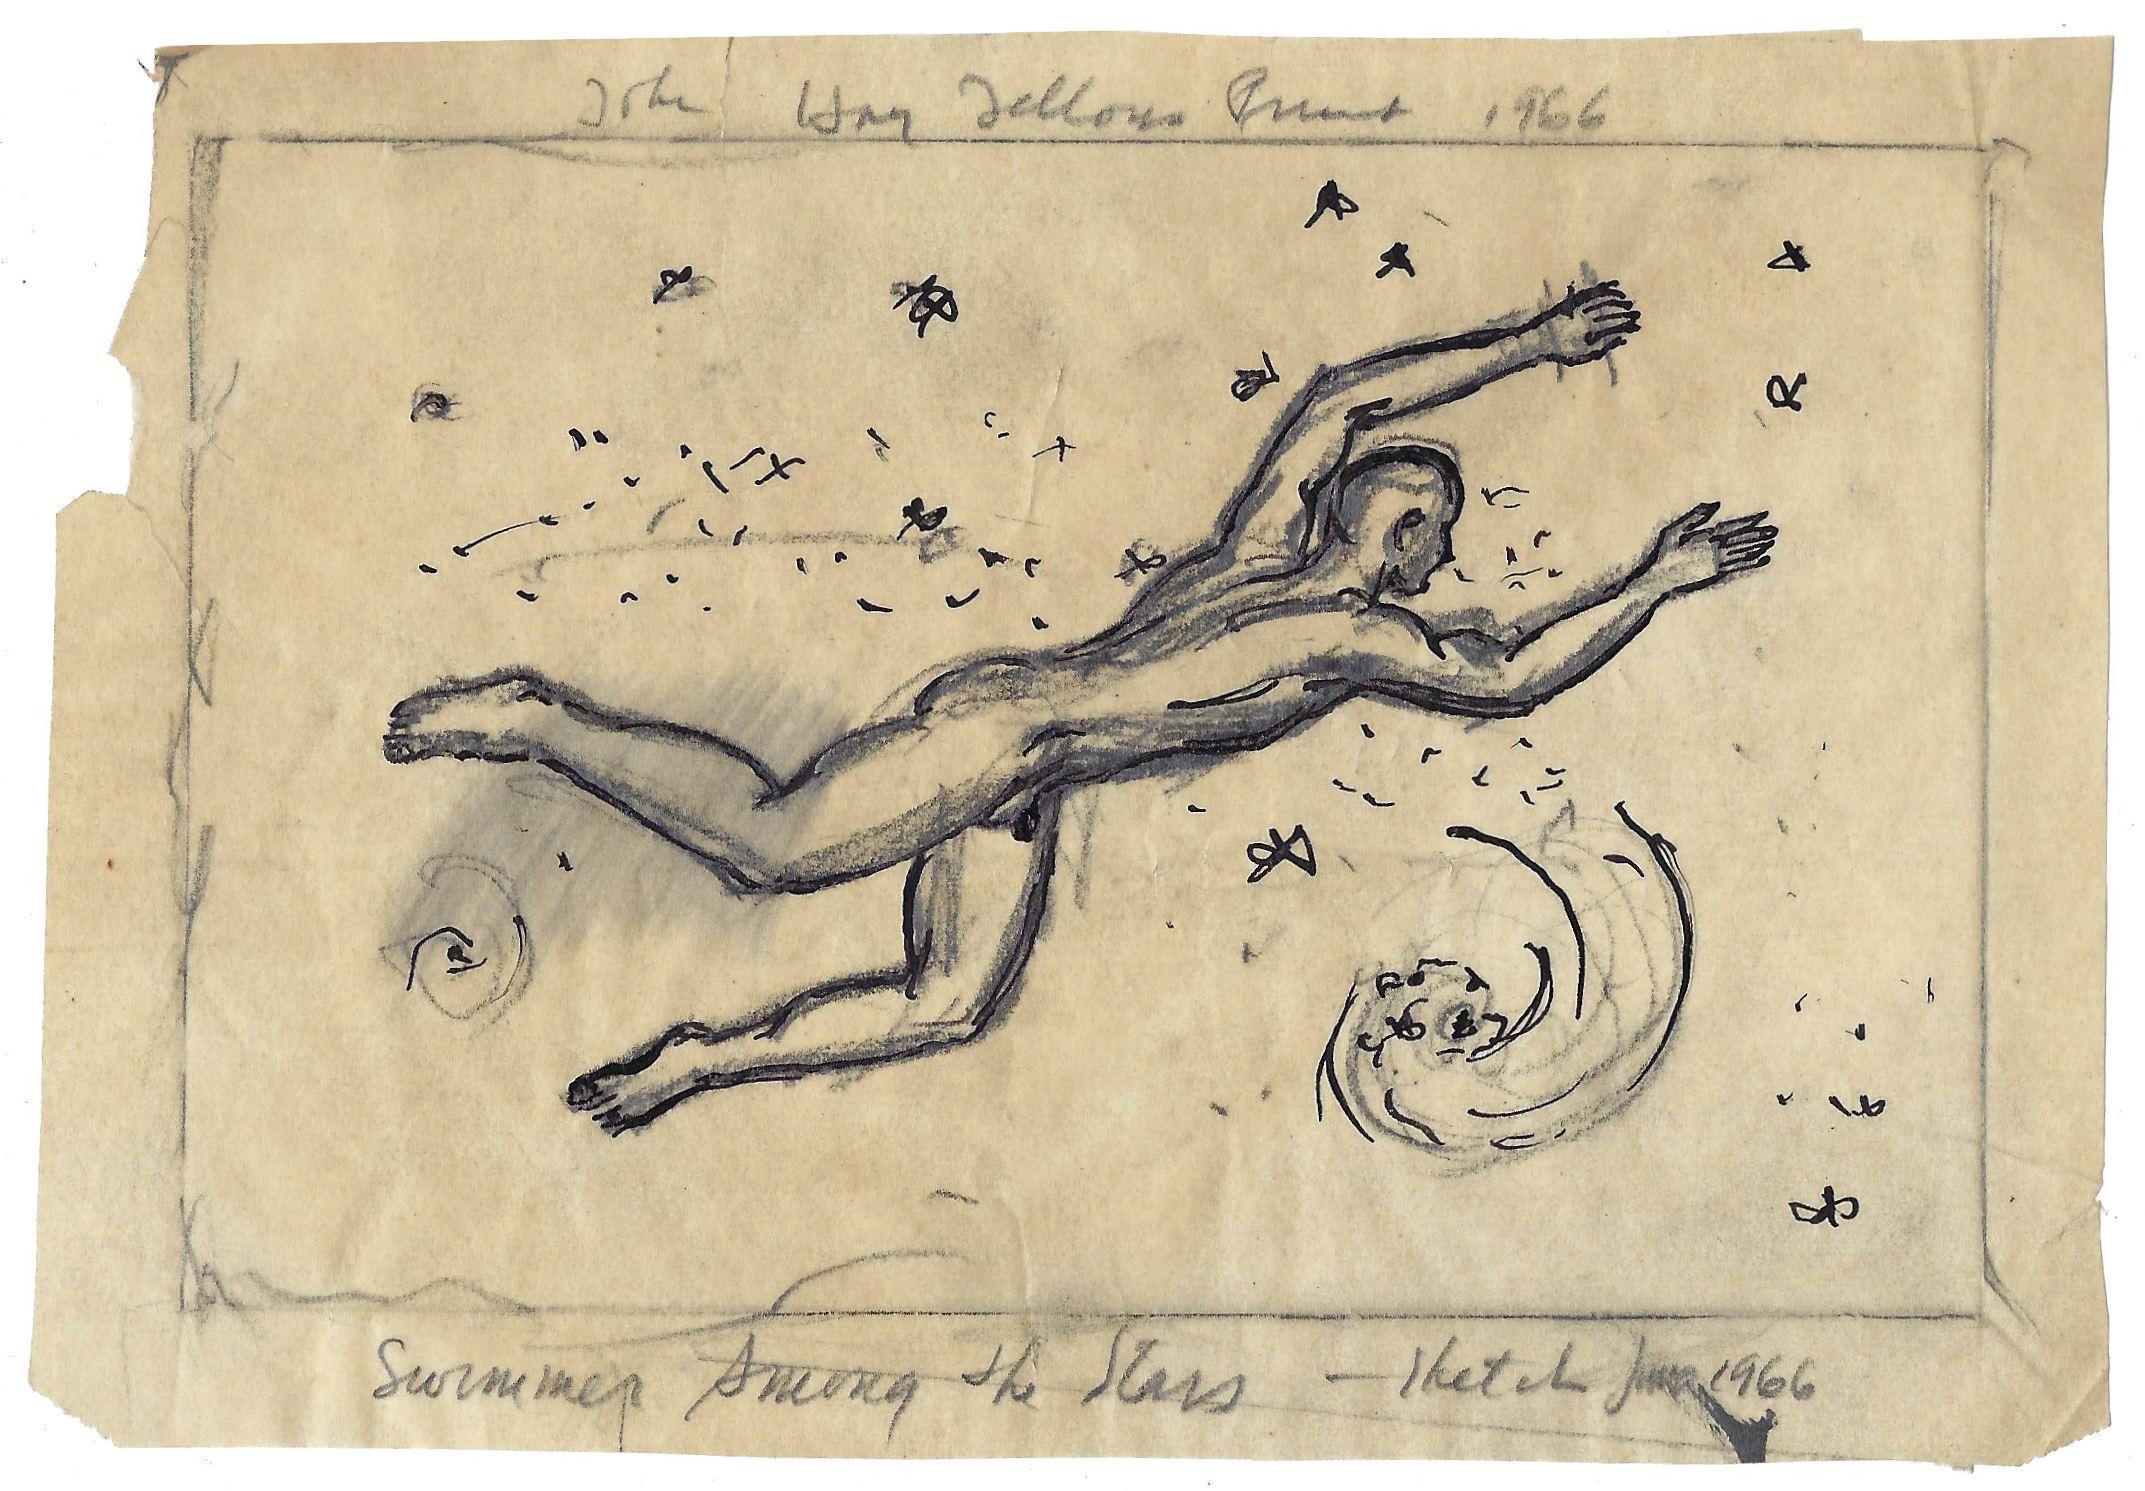 John Hay Fellows Print 1966
Swimmer Among the Stars — Sketch June 1966